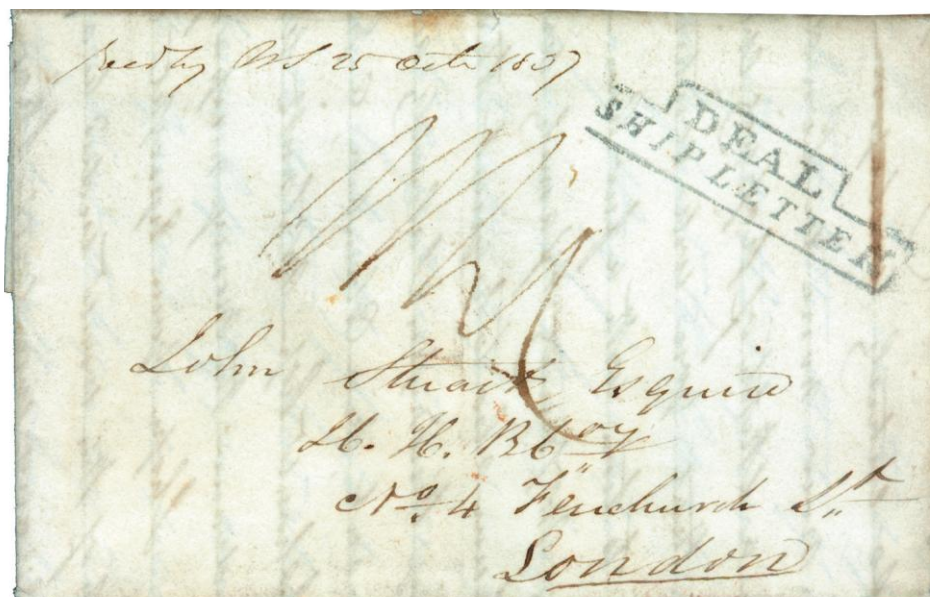 Recd by 25 Octr 1837
DEAL
SHIP LETTER
John Stuart Esquire
H. H. B Coy
No. 4 Fenchurch St.
London